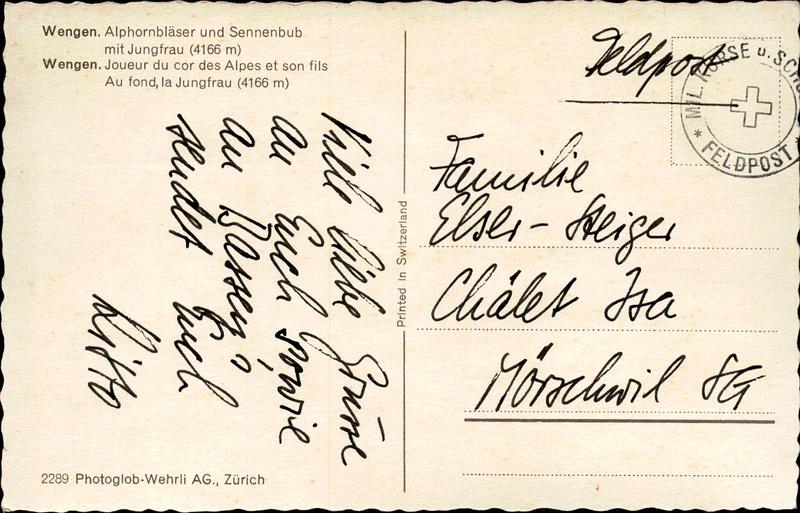 Wengen. Alphornbläser und Sennenbub
mit Jungfrau (4166 m)
Wengen. Joueur du cor des Alpes et son fils
Au fond, la Jungfrau (4166 m)
Viele liebe Grüsse
an Euch sowie
an
sendet Euch
2289 Photoglob-Wehrli AG., Zürich
Printed in Switzerland
Feldpost
MIL. KURSE u. SCHU
* FELDPOST *
Familie
Elser-Steiger
Châlet Isa
Mörschwil SG